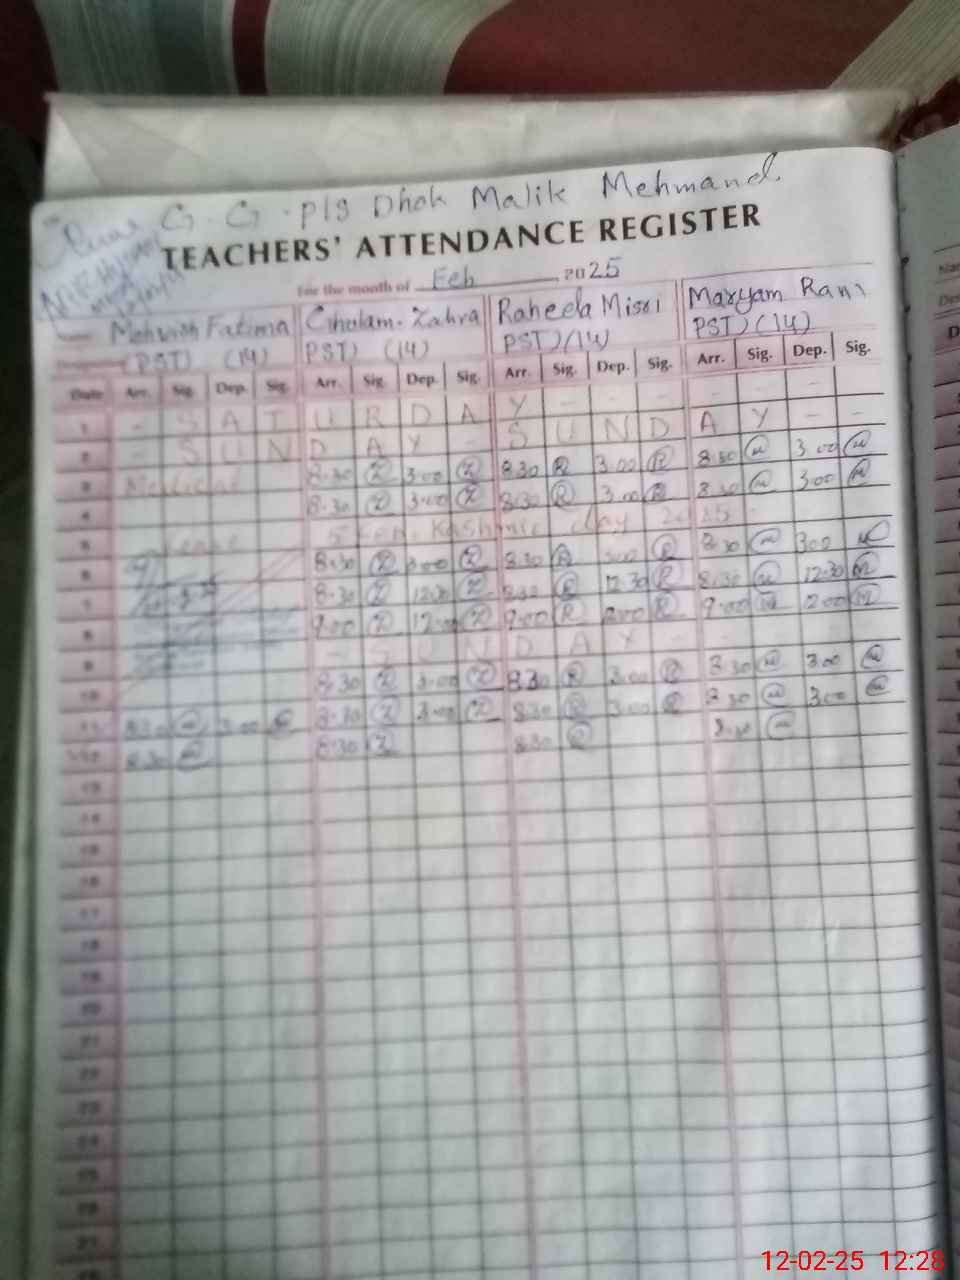 G. G. P/S Dhok Malik Mehmand
TEACHERS' ATTENDANCE REGISTER
For the month of Feb 2025
Mehwish Fatima Gholam Zahra Raheela Misri Maryam Rani
(PST) (14) PST) (14) PST) (14) PST) (14)
Date Arr. Sig. Dep. Sig. Arr. Sig. Dep. Sig. Arr. Sig. Dep. Sig. Arr. Sig. Dep. Sig.
1 - S A T U R D A Y - - - - - - -
2 S U N D A Y - S U N D A Y - -
3 Medical 8.30 Z 3.00 Z 8.30 R 3.00 R 8.30 M 3.00 M
4 8.30 Z 3.00 Z 8.30 R 3.00 R 8.30 M 3.00 M
5 Leave 5 Feb. Kashmir day 2025
6 8.30 Z 3.00 Z 8.30 R 3.00 R 8.30 M 3.00 M
7 8.30 Z 12.30 Z 8.30 R 12.30 R 8.30 M 12.30 M
8 9.00 Z 12.00 Z 9.00 R 2.00 R 9.00 M 2.00 M
9 - S U N D A Y - - - -
10 8.30 Z 3.00 Z 8.30 R 3.00 R 8.30 M 3.00 M
11 8.30 M 3.00 M 8.30 Z 3.00 Z 8.30 R 3.00 R 8.30 M 3.00 M
12 8.30 M 8.30 Z 8.30 R 8.30 M
13
14
15
16
17
18
19
20
21
22
23
24
25
26
27
12-02-25 12:28